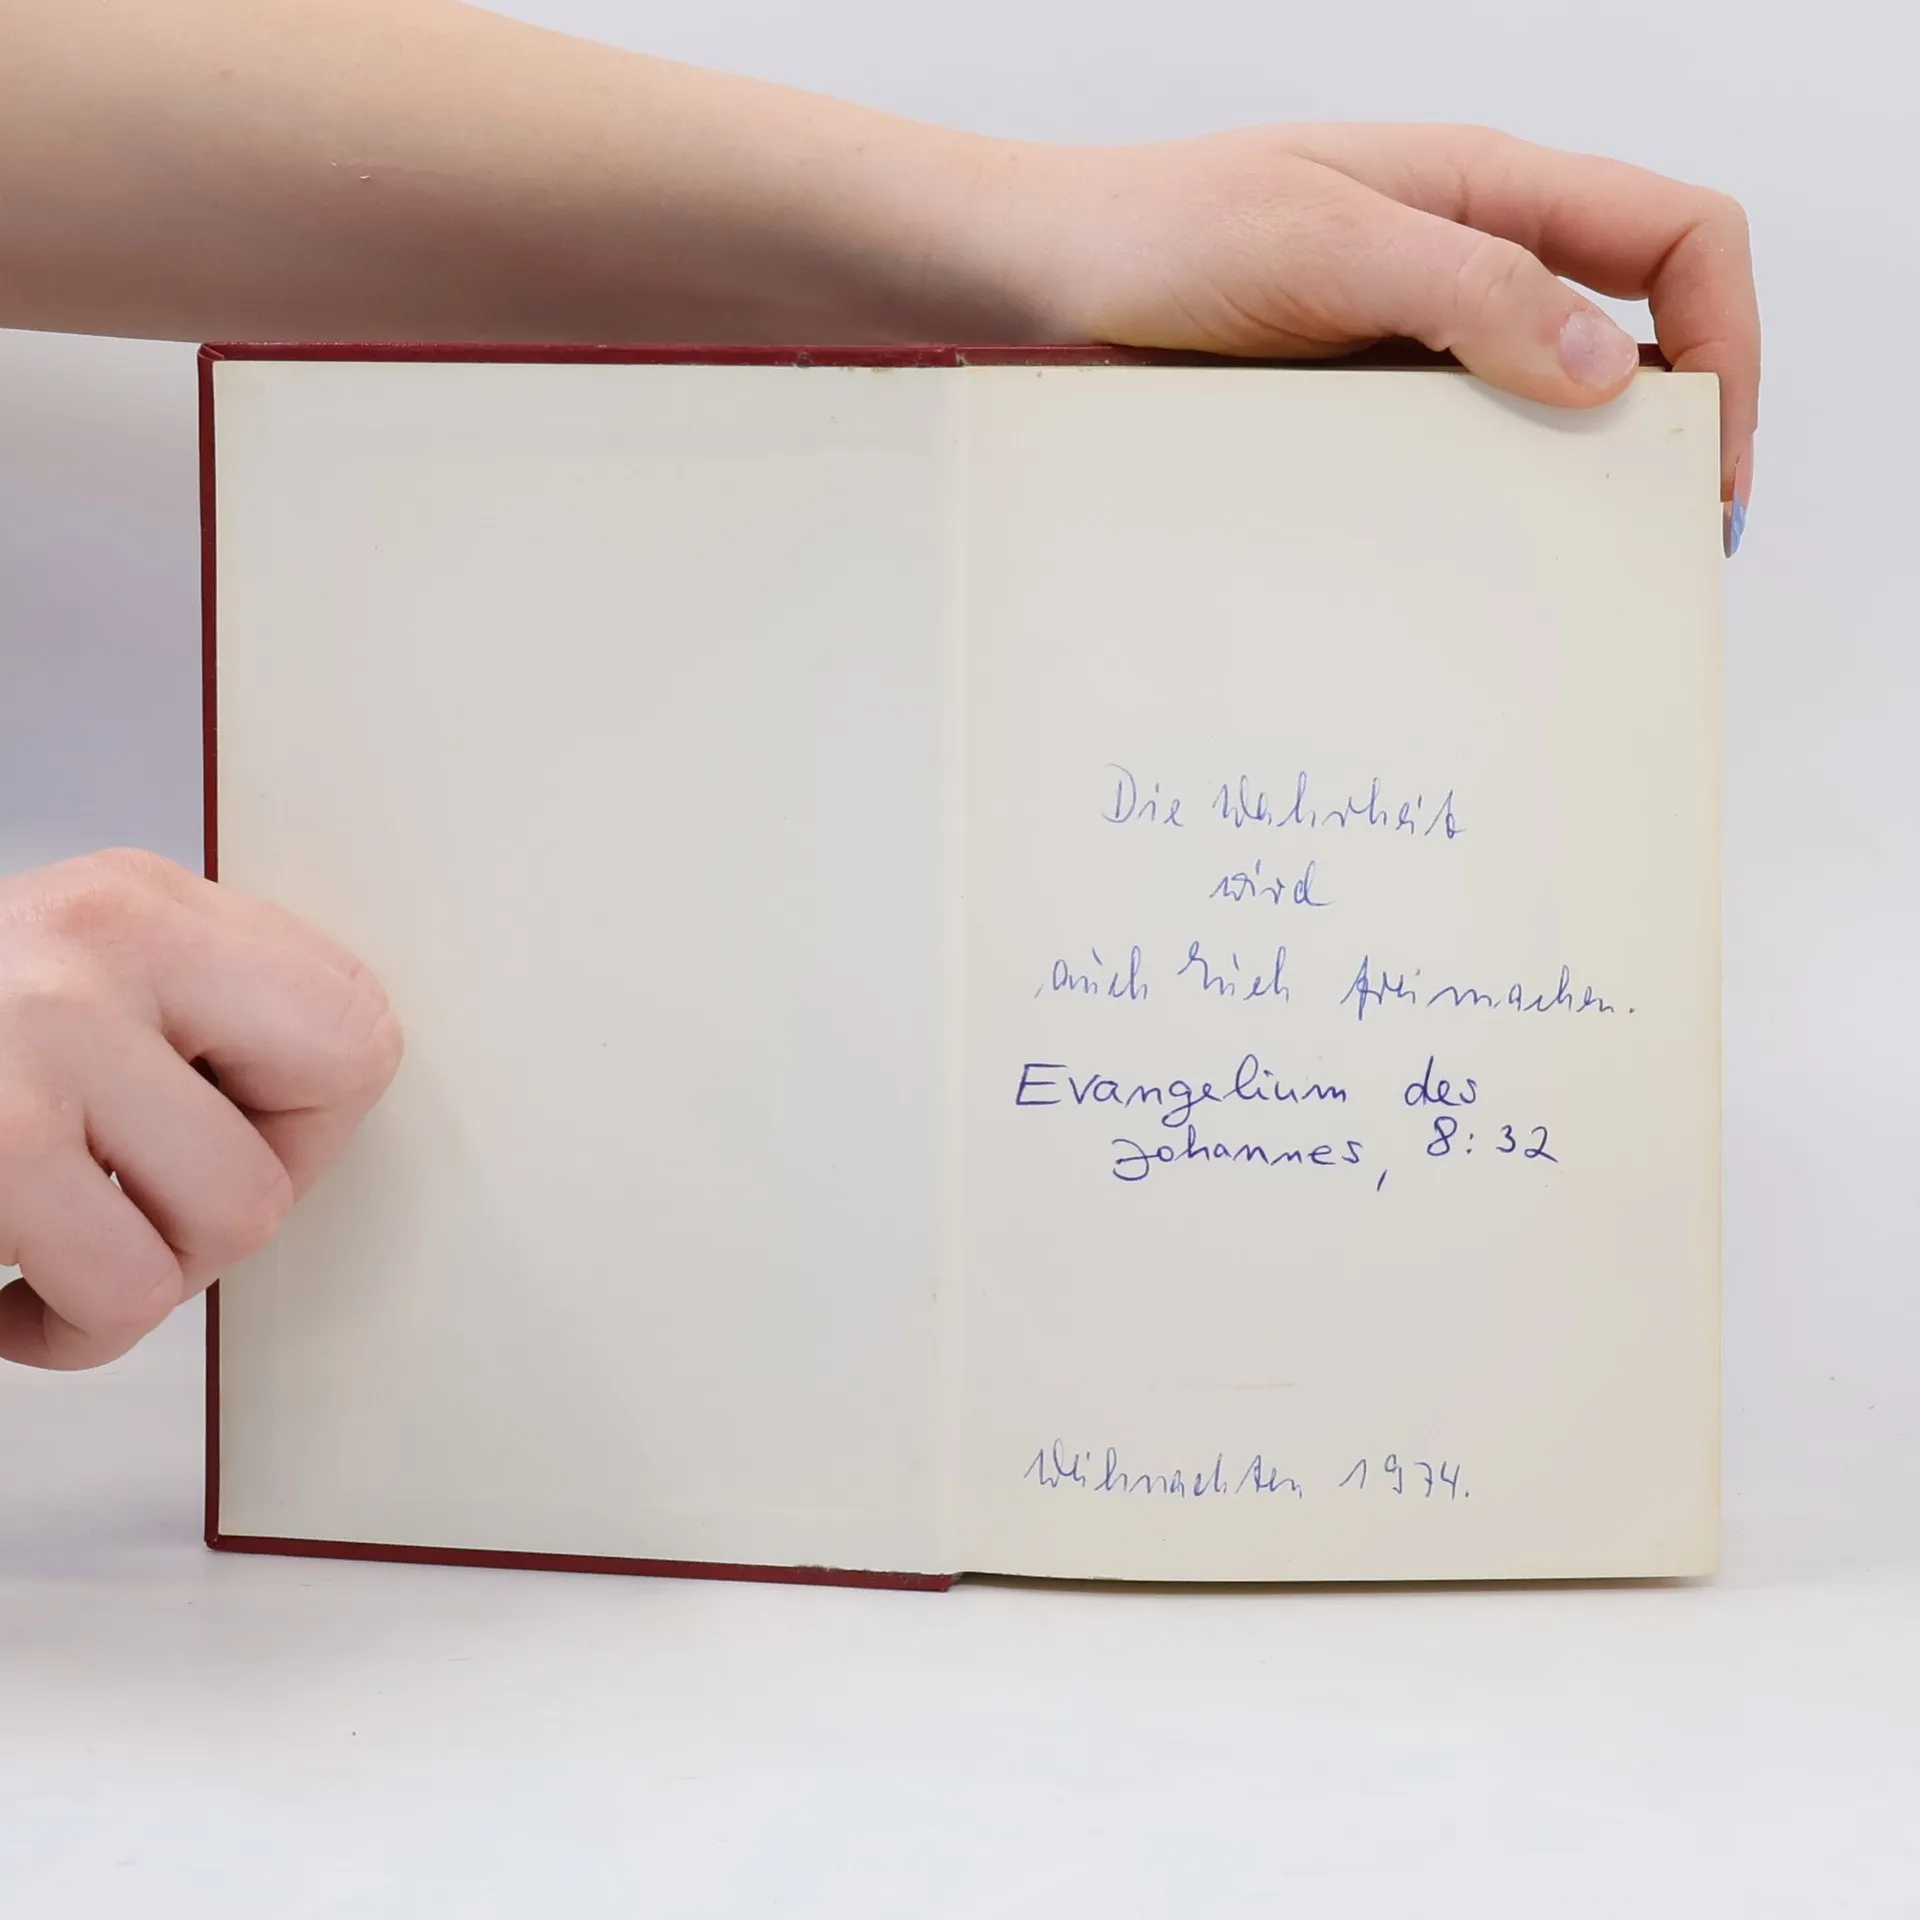 Die Wahrheit
wird
auch Euch freimachen.
Evangelium des
Johannes, 8:32
Weihnachten 1974.